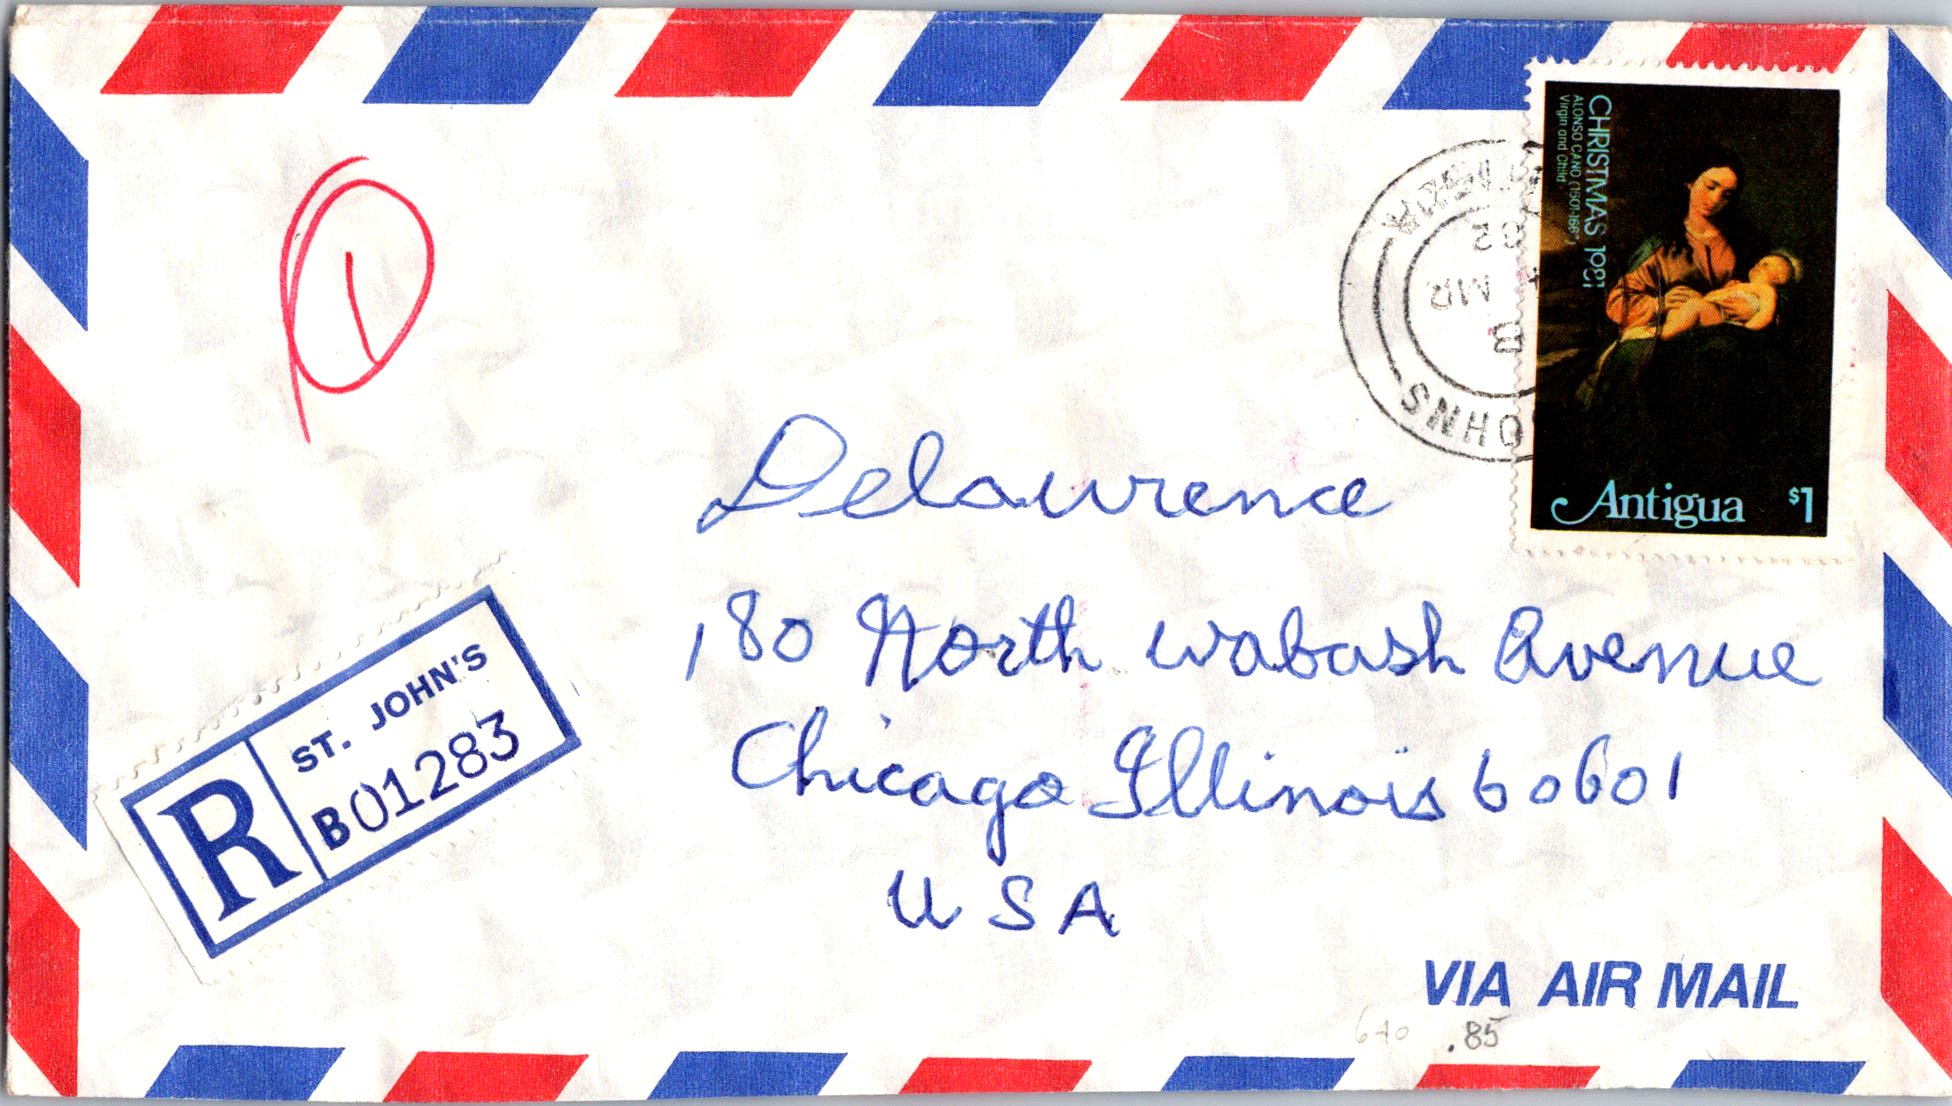 CHRISTMAS 1981
ALONSO CANO (1501-166
Virgin and Child
Antigua $1
82
MR
B
OHNS
Delawrence
180 North Wabash Avenue
Chicago Illinois 60601
U S A
R
ST. JOHN'S
B01283
VIA AIR MAIL
.85